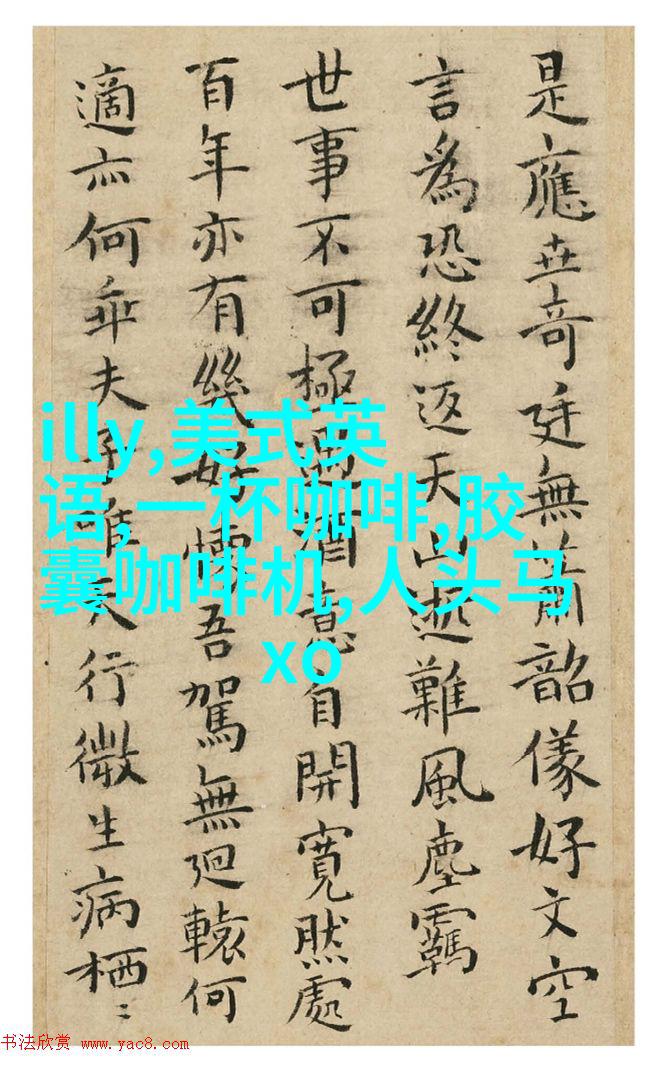 是應奇廷無韶儀好文空
言爲恐終返天山難風塵羈
世事不可極遇酒意自開寬然處
百年亦有幾好懷吾駕無迴轅何
適亦何乖夫子行微生病栖〻
illy,美式英
语,一杯咖啡,胶
囊咖啡机,人头马
xo
书法欣赏 www.yac8.com